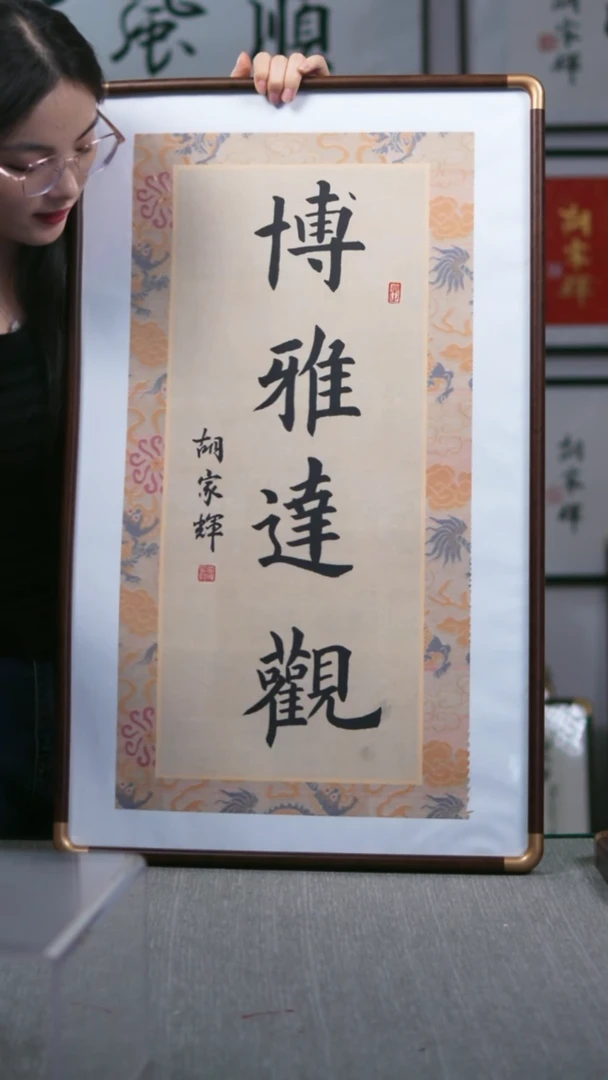 博雅達觀
胡家輝
順
風
胡家輝
胡家輝
胡家輝